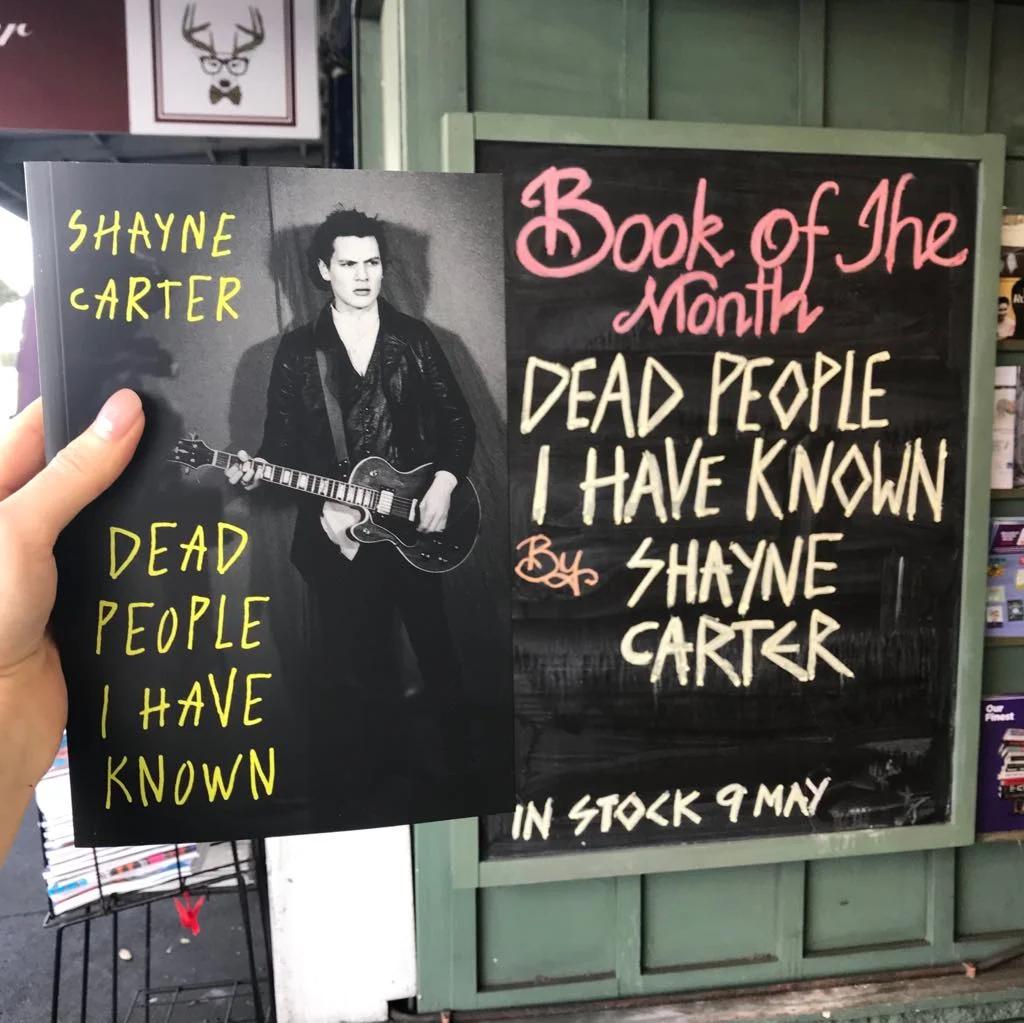 SHAYNE
CARTER
DEAD
PEOPLE
I HAVE
KNOWN
Book of The
Month
DEAD PEOPLE
I HAVE KNOWN
By SHAYNE
CARTER
IN STOCK 9 MAY
Our
Finest